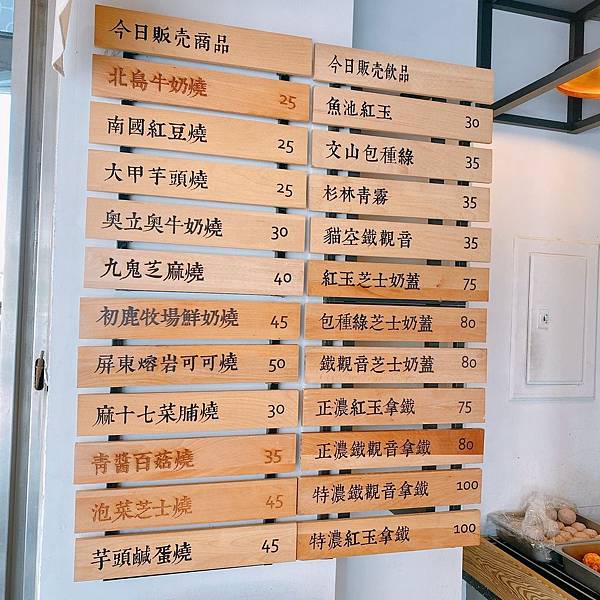 今日販売商品
北島牛奶燒 25
南國紅豆燒 25
大甲芋頭燒 25
奧立奧牛奶燒 30
九鬼芝麻燒 40
初鹿牧場鮮奶燒 45
屏東熔岩可可燒 50
麻十七菜脯燒 30
青醬百菇燒 35
泡菜芝士燒 45
芋頭鹹蛋燒 45
今日販売飲品
魚池紅玉 30
文山包種綠 35
杉林青霧 35
貓空鐵觀音 35
紅玉芝士奶蓋 75
包種綠芝士奶蓋 80
鐵觀音芝士奶蓋 80
正濃紅玉拿鐵 75
正濃鐵觀音拿鐵 80
特濃鐵觀音拿鐵 100
特濃紅玉拿鐵 100